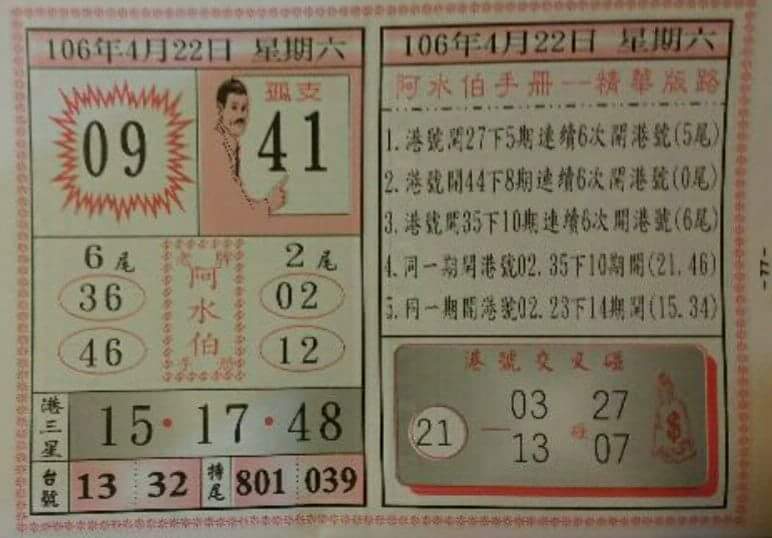 106年4月22日 星期六
09
孤支
41
6尾
36
46
老牌
阿水伯
手冊
2尾
02
12
港三星
15·17·48
台號
13 32
特尾
801 039
106年4月22日 星期六
阿水伯手冊--精華版路
1.港號開27下5期連續6次開港號(5尾)
2.港號開44下8期連續6次開港號(0尾)
3.港號開35下10期連續6次開港號(6尾)
4.同一期開港號02.35下10期開(21.46)
5.同一期開港號02.23下14期開(15.34)
港號交叉碰
21
03
13
碰
27
07
$
-77-